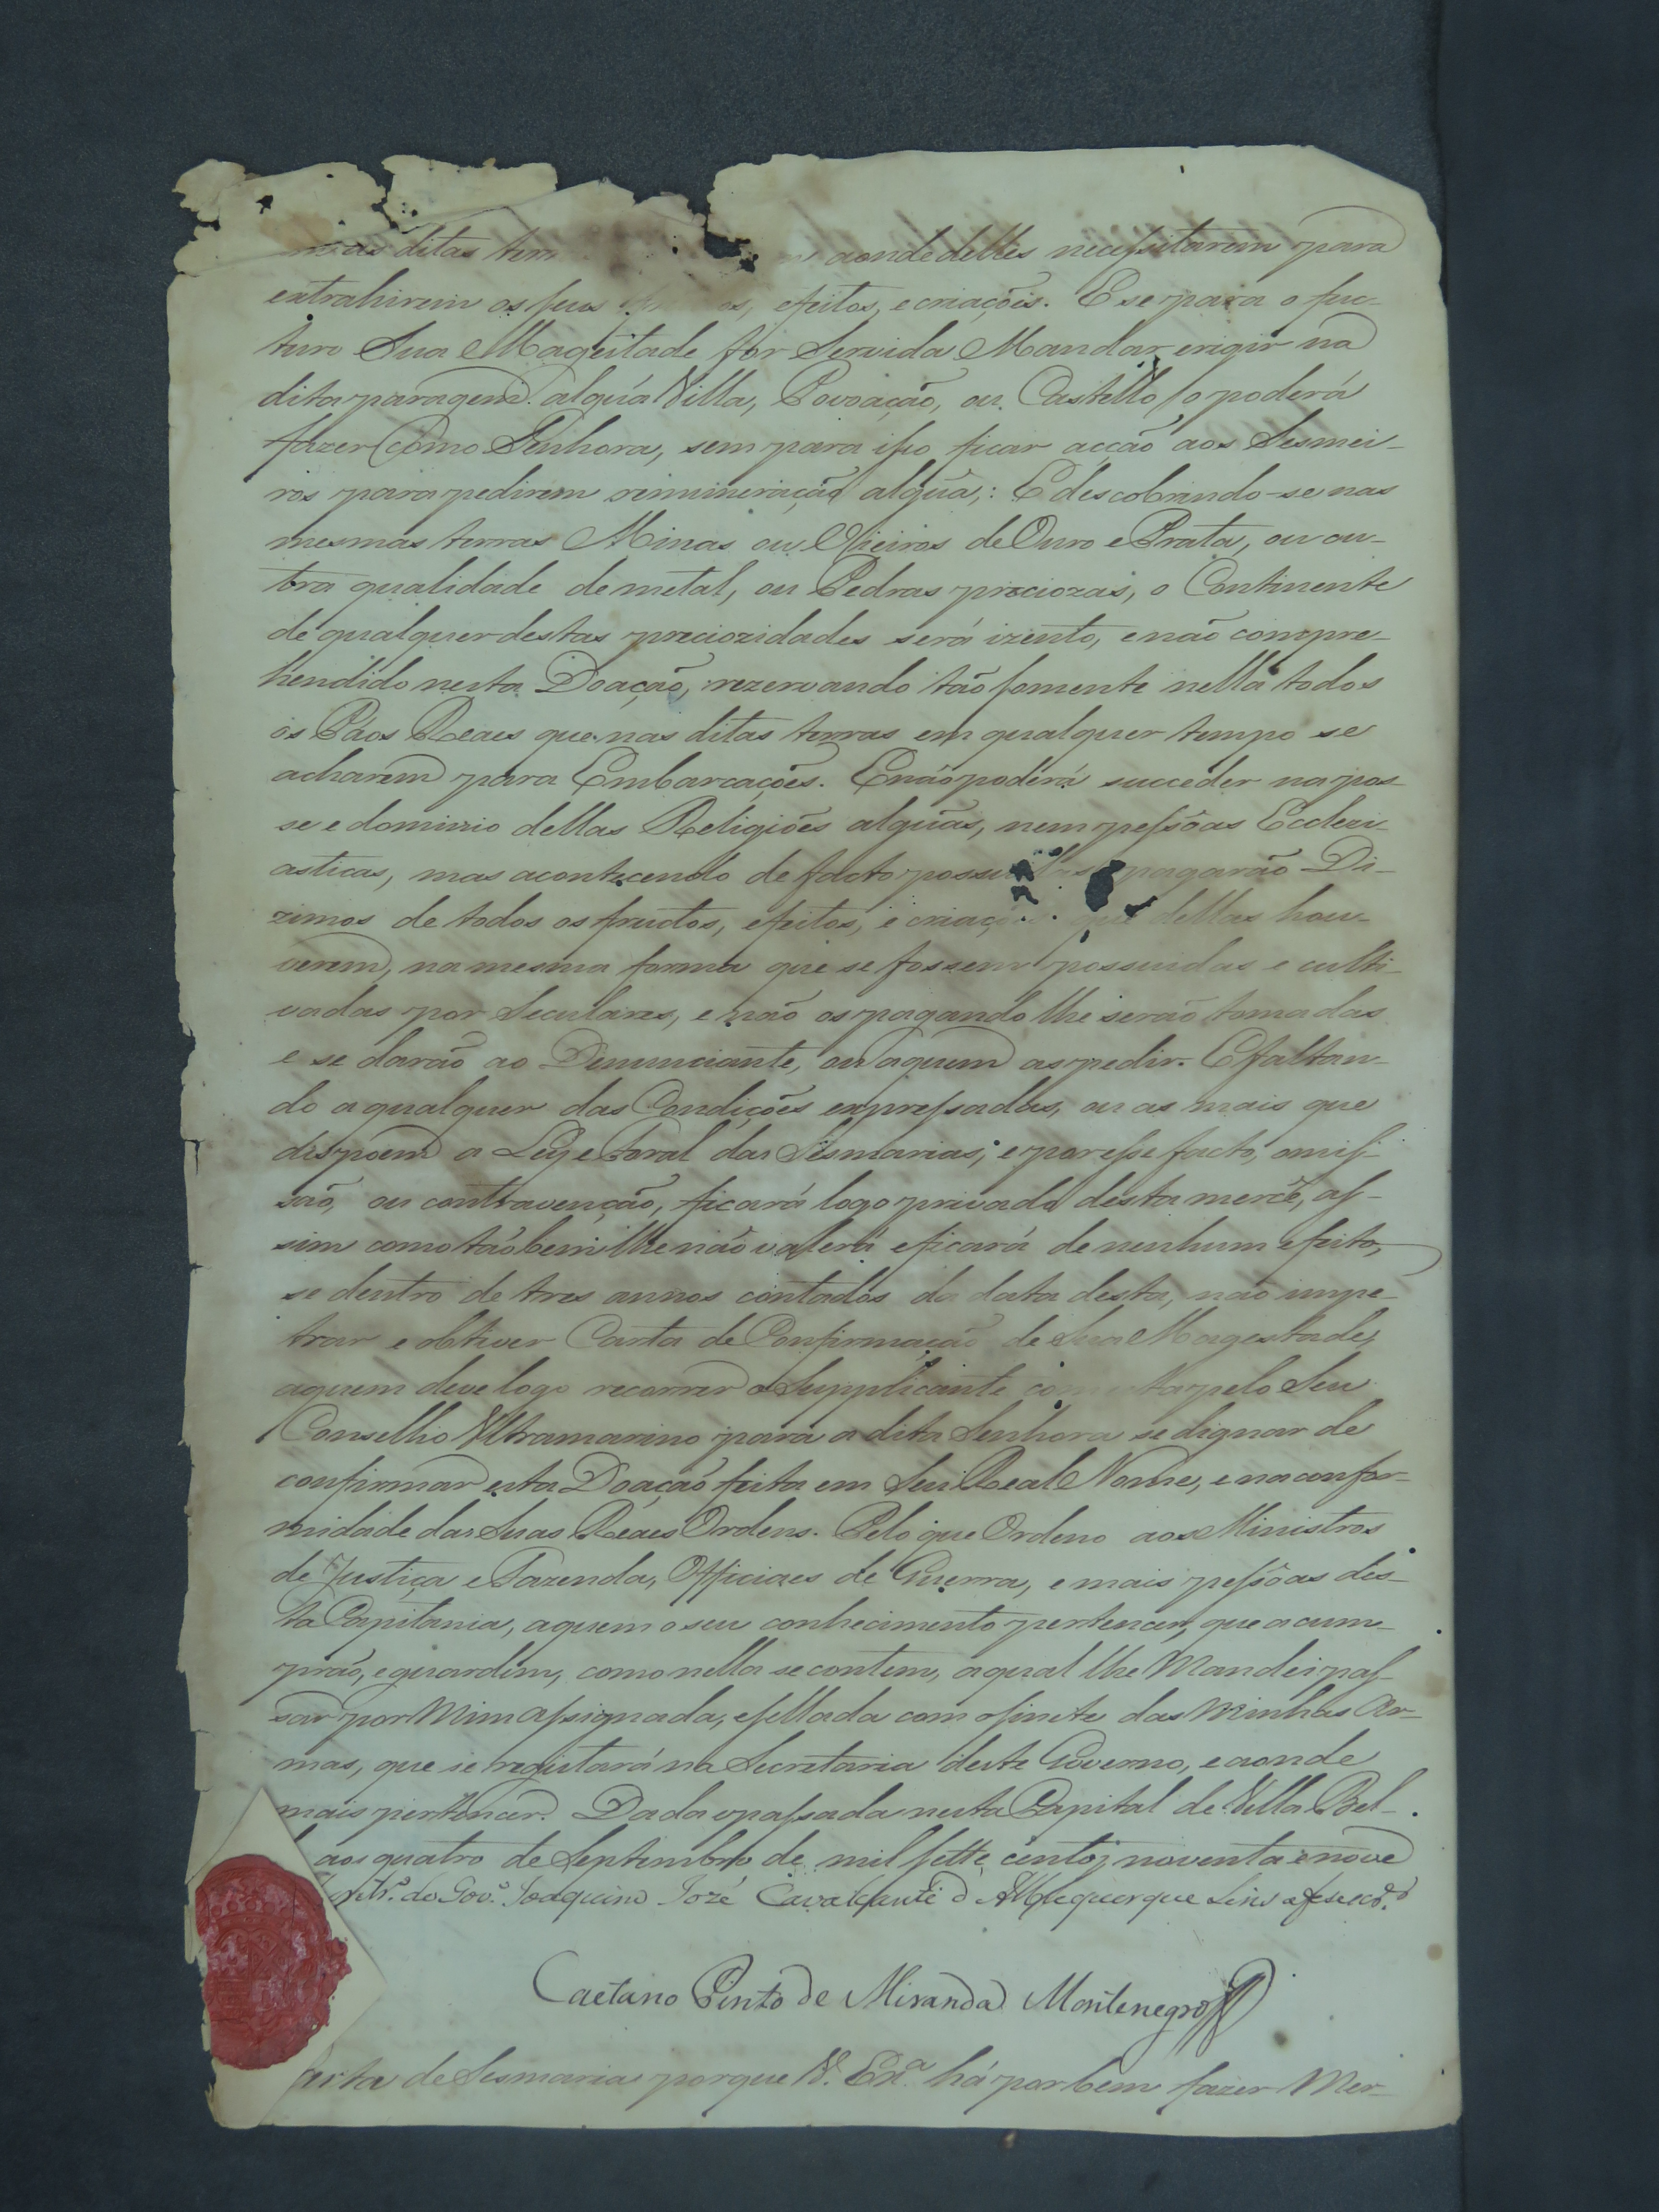 mas ditas terr aonde delles necessitarem para
extrahirem os seus os, efeitos, e criaçoẽs. E se para o fu-
turo Sua Magestade for Servida Mandar erigir na
dita paragem algũa Villa, Povoação, ou Castello, o poderá
fazer Como Senhora, sem para isso ficar acção aos Sesmei-
ros para pedirem remuneração algũa,: E descobrindo-se nas
mesmas terras Minas ou Vieiros de Ouro e Prata, ou ou-
tra qualidade de metal, ou Pedras preciozas, o Continente
de qualquer destas preciozidades será izento, e não compre-
hendido nesta Doação, rezervando tão somente nella todos
os Páos Reaes que nas ditas terras em qualquer tempo se
acharem para Embarcaçoẽs. E não poderá succeder na pos-
se e dominio dellas Religioẽs algũas, nem pessoas Ecclezi-
asticas, mas acontecendo de facto possuillas pagarão Di-
zimos de todos os fructos, efeitos, e criaçoẽs que dellas hou-
verem, na mesma forma que se fossem possuidas e culti-
vadas por Seculares, e não os pagando lhe serão tomadas
e se darão ao Denunciante, ou aquem as pedir. E faltan-
do a qualquer das Condiçoẽs expressadas, ou as mais que
dispoem a Ley e Foral das Sesmarias; e por esse facto, omis-
são, ou contravenção, ficará logo privado desta mercê, as-
sim como tãobem lhe não valerá e ficará de nenhum efeito,
se dentro de tres annos contados da data desta, não impe-
trar e obtiver Carta de Confirmação de Sua Magestade,
aquem deve logo recorrer o Supplicante com esta pelo Seu
Conselho Ultramarino para a dita Senhora se dignar de
confirmar esta Doação feita em Seu Real Nome, e na confor-
midade das Suas Reaes Ordens. Pelo que Ordeno aos Ministros
de Justiça e Fazenda, Officiaes de Guerra, e mais pessoas des-
ta Capitania, aquem o seu conhecimento pertencer, que a cum-
prão, e guardem, como nella se contem, a qual lhe Mandei pas-
sar por Mim assignada, e sellada com o sinete das Minhas Ar-
mas, que se registará na Secretaria deste Governo, e aonde
mais pertencer. Dada e passada nesta Capital de Villa Bel-
aos quatro de Septembro de mil sette centos noventa e nove
do Gov.º Joaquim Jozé Cavalcante d Albuquerque Lins
Caetano Pinto de Miranda Montenegro
Carta de Sesmaria porque V. Ex.ª há por bem fazer Mer-